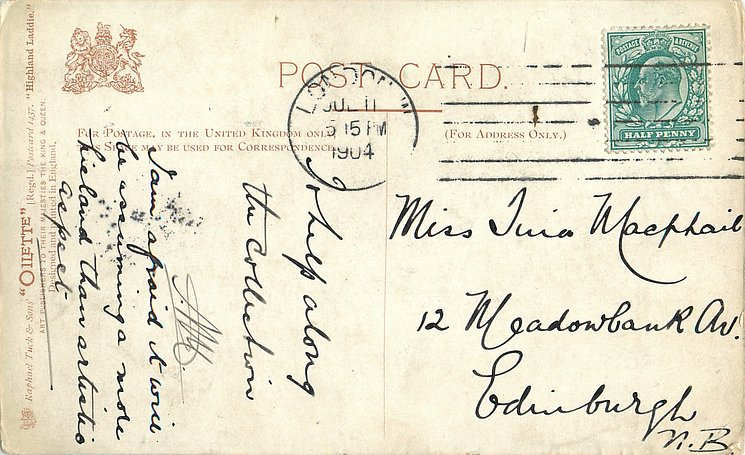 POST CARD.
FOR POSTAGE, IN THE UNITED KINGDOM ONLY,
THIS SPACE MAY BE USED FOR CORRESPONDENCE.
(FOR ADDRESS ONLY.)
LONDON.W
JUL 11
5 15 PM
1904
POSTAGE REVENUE
HALF PENNY
Miss Tina Macphail
12 Meadowbank Av.
Edinburgh
N.B.
To help along
the collection
I am afraid it will
be assuming a more
hieland than artistic
aspect
Raphael Tuck & Sons' "OILETTE" [Regd.] Postcard 1437. "Highland Laddie."
ART PUBLISHERS TO THEIR MAJESTIES THE KING & QUEEN.
Designed and Printed in England.